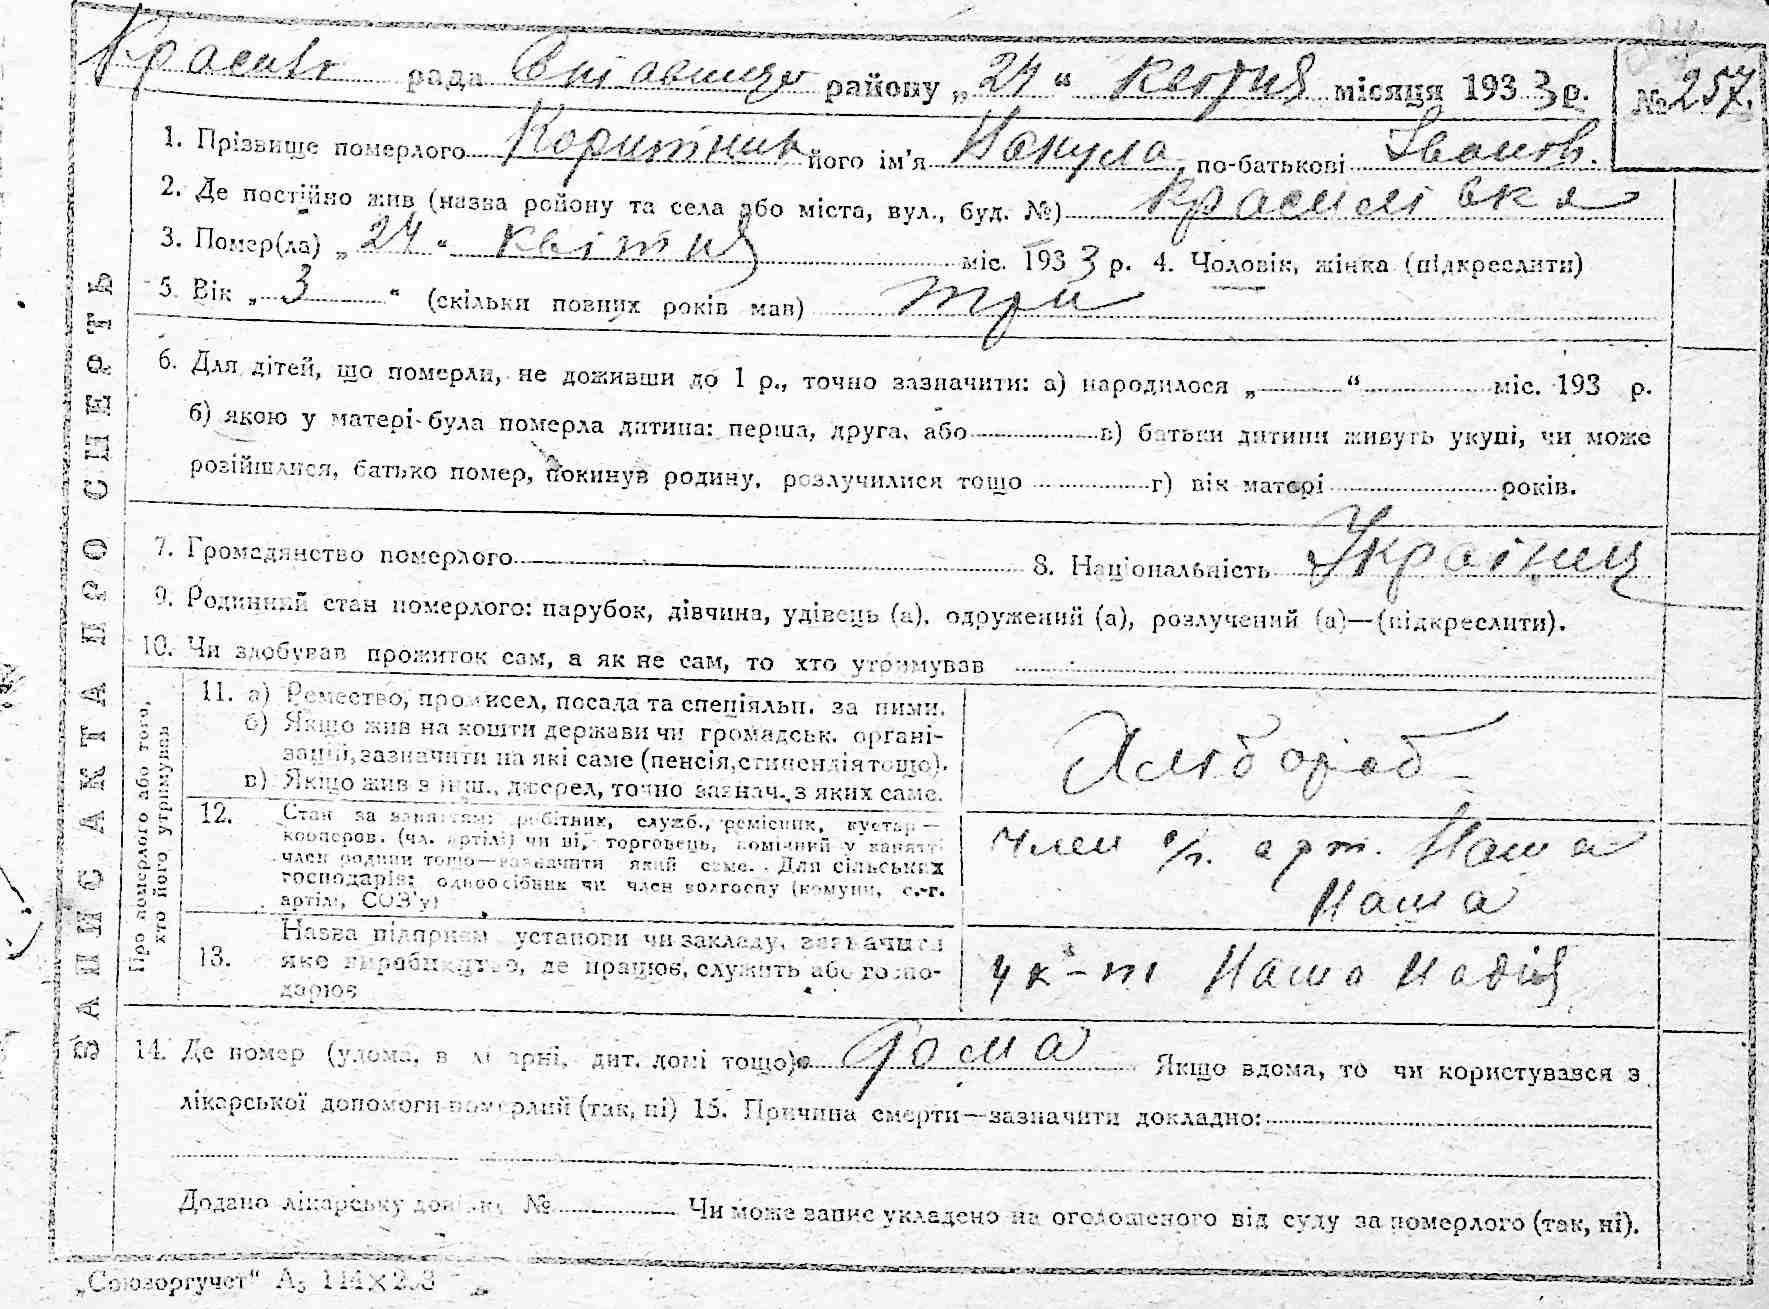 Красилі рада Ставищен району „24“ Квітня місяця 1933 р. № 257.
1. Прізвище померлого Коритник його ім'я Вакула по-батькові Іванов.
2. Де постійно жив (назва району та села або міста, вул., буд. №) Красилівка
3. Помер(ла) „24“ квітня міс. 1933 р. 4. Чоловік, жінка (підкреслити)
5. Вік „3“ (скільки повних років мав) три
6. Для дітей, що померли, не доживши до 1 р., точно зазначити: а) народилося „ “ міс. 193 р.
б) якою у матері була померла дитина: перша, друга, або в) батьки дитини живуть укупі, чи може
розійшлися, батько помер, покинув родину, розлучилися тощо г) вік матері років.
7. Громадянство померлого 8. Національність Українец
9. Родинний стан померлого: парубок, дівчина, удівець (а), одружений (а), розлучений (а)—(підкреслити).
10. Чи здобував прожиток сам, а як не сам, то хто утримував
11. а) Ремество, промисел, посада та спеціяльн. за ними.
б) Якщо жив на кошти держави чи громадськ. органі-
зацій, зазначити на які саме (пенсія, стипендія тощо).
в) Якщо жив з інш. джерел, точно зазнач., з яких саме.
Хлібороб
12. Стан за заняттям: робітник, служб., ремісник, кустар—
кооперов. (чл. артілі) чи ні, торговець, помічний у занятті
член родини тощо—зазначити який саме. Для сільських
господарів: одноосібник чи член колгоспу (комуни, с.-г.
артілі, СОЗ'у)
Член с/г. арт. Наша
Наша
13. Назва підприєм. установи чи закладу, зазначити
яке виробництво, де працює, служить або госпо-
дарює
у к-т Наша Надія
14. Де помер (удома, в лікарні, дит. домі тощо) дома Якщо вдома, то чи користувався з
лікарської допомоги померлий (так, ні) 15. Причина смерти—зазначити докладно:
Додано лікарську довідку № Чи може запис укладено на оголошеного від суду за померлого (так, ні).
„Союзоргучет“ А5
ЗАПИС АКТА ПРО СМЕРТЬ
Про померлого або того,
хто його утримував